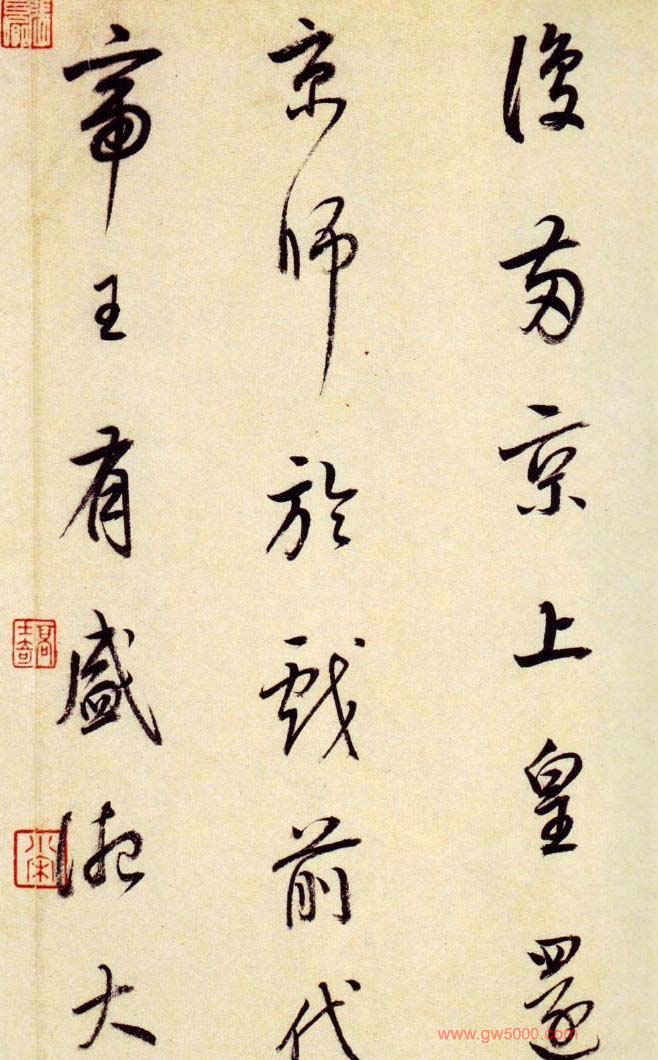 復兩京上皇還
京師於戲前代
帝王有盛德大
www.gw5000.com